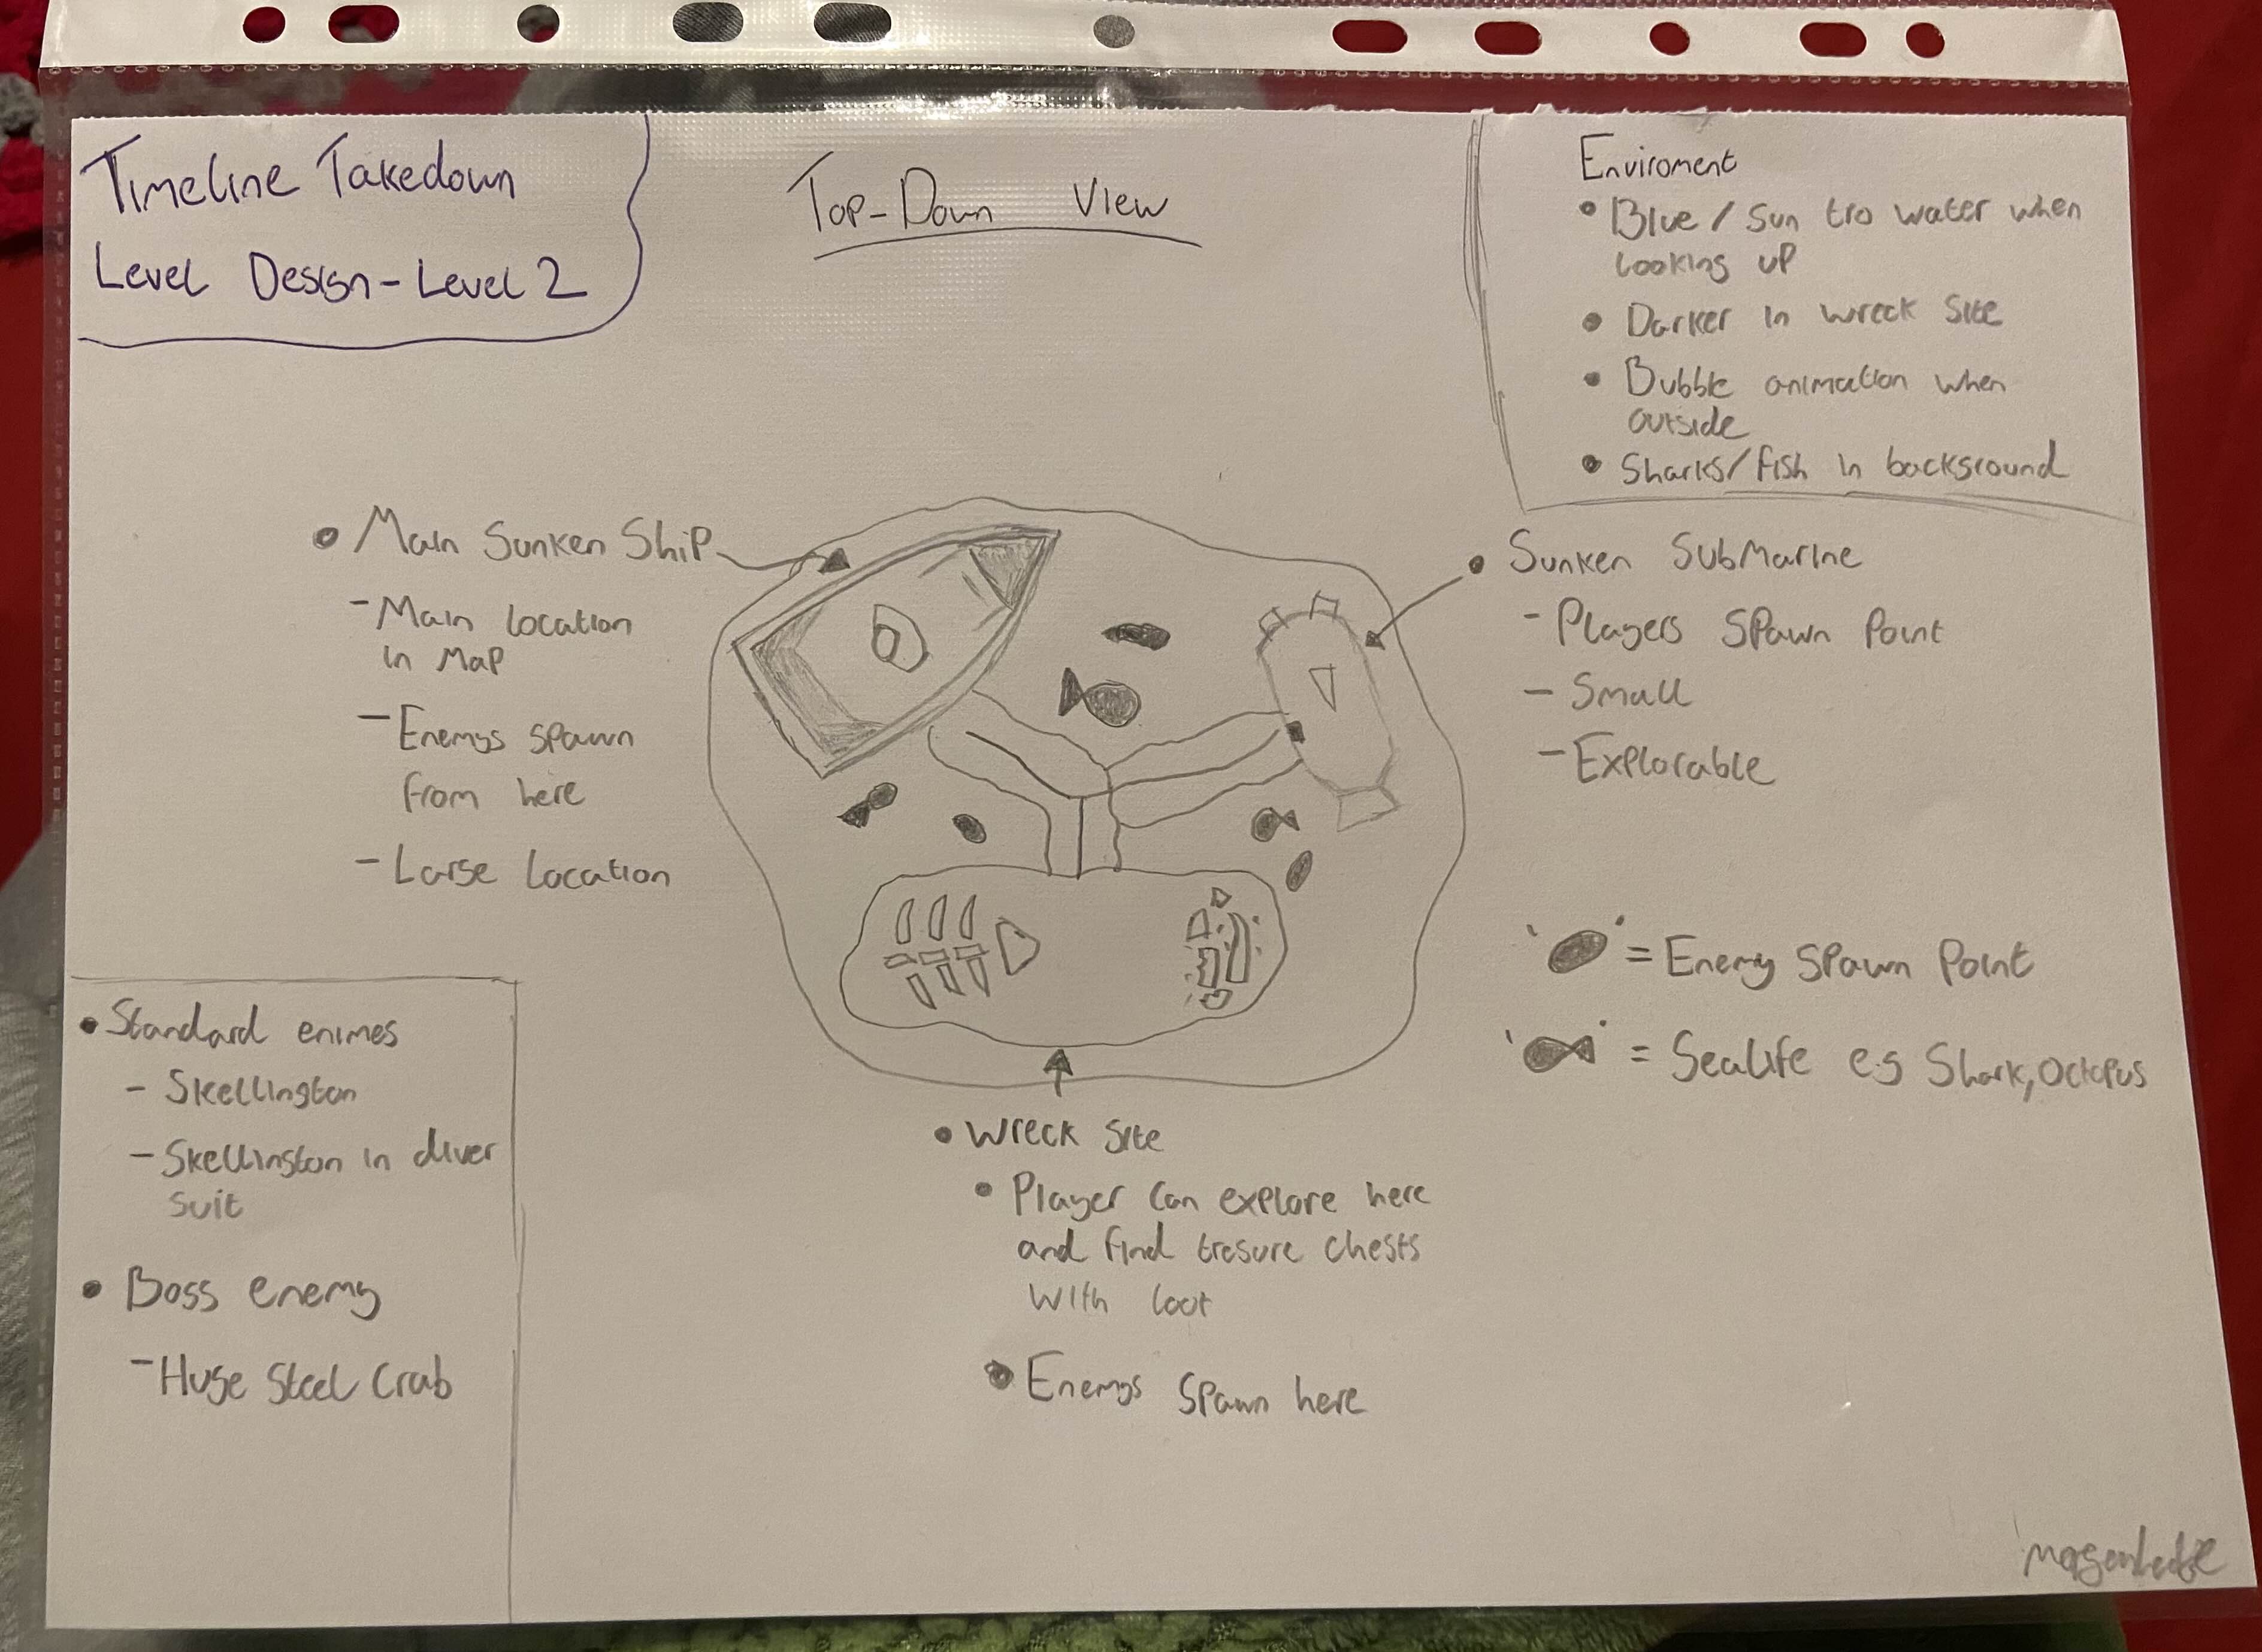 Timeline Takedown
Level Design - Level 2
Top-Down View
Enviroment
• Blue / Sun tro water when
looking up
• Darker in wreck site
• Bubble animation when
outside
• Sharks/fish in background
• Main Sunken Ship
- Main location
in Map
- Enemys spawn
from here
- Large location
• Sunken Submarine
- Players Spawn Point
- Small
- Explorable
= Enemy Spawn Point
= Sealife eg Shark, Octopus
• Standard enimes
- Skellington
- Skellington in diver
suit
• Boss enemy
- Huge Steel Crab
• Wreck Site
• Player can explore here
and find tresure chests
with loot
• Enemys Spawn here